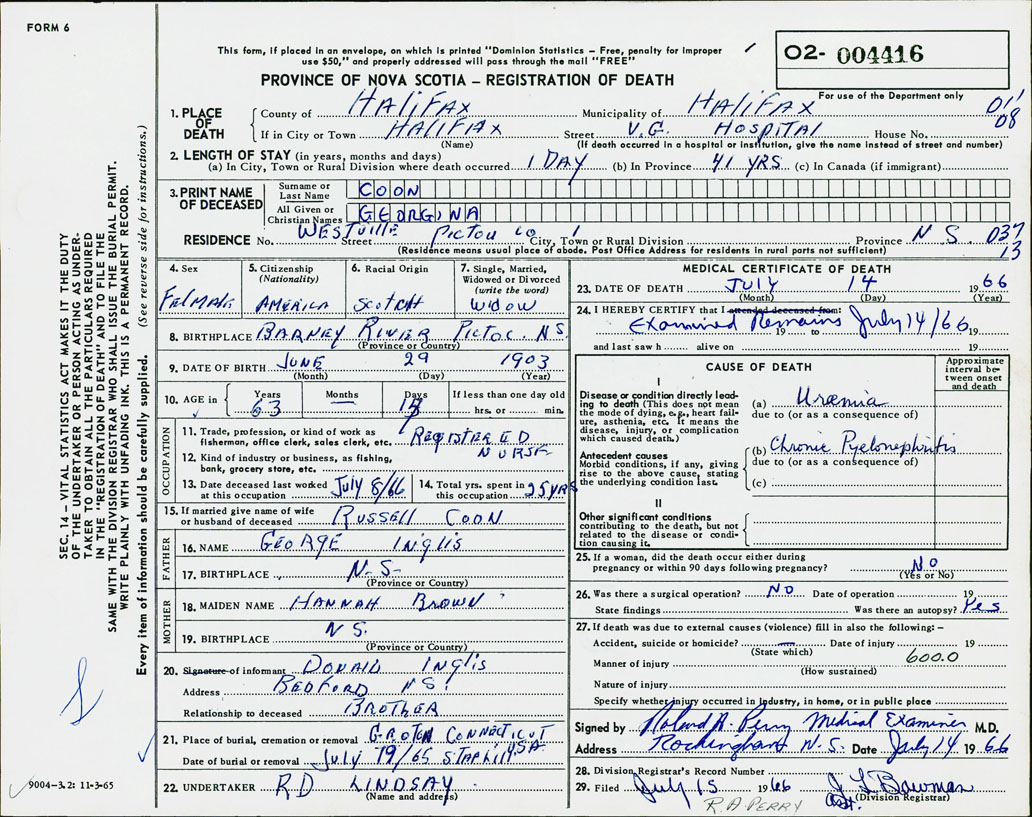 FORM 6
This form, if placed in an envelope, on which is printed "Dominion Statistics – Free, penalty for improper
use $50," and properly addressed will pass through the mail "FREE"
O2- 004416
PROVINCE OF NOVA SCOTIA – REGISTRATION OF DEATH
For use of the Department only
1. PLACE OF DEATH
County of HALIFAX Municipality of HALIFAX 011
If in City or Town HALIFAX Street V.G. HOSPITAL House No. 08
(Name) (If death occurred in a hospital or institution, give the name instead of street and number)
2. LENGTH OF STAY (in years, months and days)
(a) In City, Town or Rural Division where death occurred 1 DAY (b) In Province 41 YRS (c) In Canada (if immigrant)
3. PRINT NAME OF DECEASED
Surname or Last Name COON
All Given or Christian Names GEORGINA
RESIDENCE No. WESTVILLE Street PICTOU CO City, Town or Rural Division Province N S. 037
(Residence means usual place of abode. Post Office Address for residents in rural parts not sufficient) 13
4. Sex FEMALE
5. Citizenship (Nationality) AMERICA
6. Racial Origin SCOTCH
7. Single, Married, Widowed or Divorced (write the word) WIDOW
8. BIRTHPLACE BARNEY RIVER PICTOU. N.S.
(Province or Country)
9. DATE OF BIRTH JUNE 29 1903
(Month) (Day) (Year)
10. AGE in Years 63 Months Days If less than one day old hrs. or min.
OCCUPATION
11. Trade, profession, or kind of work as
fisherman, office clerk, sales clerk, etc. REGISTERED
NURSE
12. Kind of industry or business, as fishing,
bank, grocery store, etc.
13. Date deceased last worked at this occupation July 8/66
14. Total yrs. spent in this occupation 25 YRS
15. If married give name of wife
or husband of deceased RUSSELL COON
FATHER
16. NAME GEORGE INGLIS
17. BIRTHPLACE N.S.
(Province or Country)
MOTHER
18. MAIDEN NAME HANNAH BROWN
19. BIRTHPLACE N S.
(Province or Country)
20. Signature of informant DONALD INGLIS
Address BEDFORD N S.
Relationship to deceased BROTHER
21. Place of burial, cremation or removal GROTON CONNECTICUT
USA
Date of burial or removal July 19/65
22. UNDERTAKER RD LINDSAY
(Name and address)
MEDICAL CERTIFICATE OF DEATH
23. DATE OF DEATH JULY 14 1966
(Month) (Day) (Year)
24. I HEREBY CERTIFY that I attended deceased from:
Examined Remains July 14/66 19 to 19
and last saw h alive on 19
CAUSE OF DEATH
Approximate interval between onset and death
I
Disease or condition directly leading to death (This does not mean the mode of dying, e.g., heart failure, asthenia, etc. It means the disease, injury, or complication which caused death.)
(a) Uraemia
due to (or as a consequence of)
Antecedent causes
Morbid conditions, if any, giving rise to the above cause, stating the underlying condition last.
(b) Chronic Pyelonephritis
due to (or as a consequence of)
(c)
II
Other significant conditions
contributing to the death, but not
related to the disease or condition causing it.
25. If a woman, did the death occur either during
pregnancy or within 90 days following pregnancy? NO
(Yes or No)
26. Was there a surgical operation? NO Date of operation 19
State findings Was there an autopsy? Yes
27. If death was due to external causes (violence) fill in also the following: –
Accident, suicide or homicide? — Date of injury 19
(State which)
Manner of injury 600.0
(How sustained)
Nature of injury
Specify whether injury occurred in industry, in home, or in public place
Signed by Roland A. Perry Medical Examiner M.D.
Address Rockingham N.S. Date July 14 1966
28. Division Registrar's Record Number
29. Filed July 15 1966 Bowman
Asst. (Division Registrar)
R.A. PERRY
SEC. 14 – VITAL STATISTICS ACT MAKES IT THE DUTY
OF THE UNDERTAKER OR PERSON ACTING AS UNDER-
TAKER TO OBTAIN ALL THE PARTICULARS REQUIRED
IN THE "REGISTRATION OF DEATH" AND TO FILE THE
SAME WITH THE DIVISION REGISTRAR WHO SHALL ISSUE THE BURIAL PERMIT.
WRITE PLAINLY WITH UNFADING INK. THIS IS A PERMANENT RECORD.
Every item of information should be carefully supplied. (See reverse side for instructions.)
9004-3.2: 11-3-65